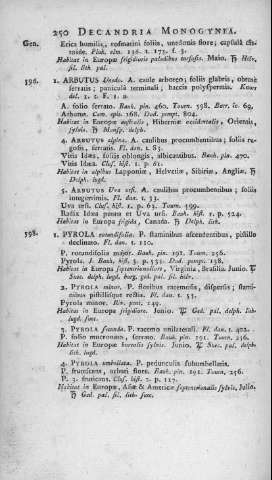 250 DECANDRIA MONOGYNEA.
Gen. Erica humilis, rosmarini foliis, unedonis flore, capsula
Pluk. alm. 136. t. 175. f. 3.
Habitat in Europæ frigidioris paludibus turfosis. Maio. ♄
396. 1. ARBUTUS Unedo. A. caule arboreo; foliis glabris, obtuse
serratis; panicula terminali; baccis polyspermis.
A. folio serrato. Bauh. pin. 460. Tourn. 598.
Arbutus. Cam. epit. 168. Dod. pempt. 804.
Habitat in Europa australi, Hiberniæ occidentalis, Oriente,
4. ARBUTUS alpina. A. caulibus procumbentibus; foliis
Fl. dan. t. 63.
Vitis Idæa, foliis oblongis, albicantibus. Bauh. pin. 470.
Vitis Idæa. Clus. hist. 1. p. 61.
Habitat in alpibus Lapponiæ, Helvetiæ, Sibiriæ, Angliæ. ♄
5. ARBUTUS Uva ursi. A. caulibus procumbentibus; foliis
integerrimis. Fl. dan. t. 33.
Uva ursi. Clus. hist. 1. p. 63. Tourn. 599.
Radix Idæa putata et Uva ursi. Bauh. hist. 1. p. 524.
Habitat in Europa frigida, Canada. ♄
598. 1. PYROLA rotundifolia. P. staminibus ascendentibus, pistillo
declinato. Fl. dan. t. 110.
P. rotundifolia major. Bauh. pin. 191. Tourn. 256.
Pyrola. J. Bauh. hist. 3. p. 535. Dod. pempt. 138.
Habitat in Europa septentrionaliore, Virginia, Brasilia. Junio.
2. PYROLA minor. P. floribus racemosis, dispersis;
nibus pistillisque rectis. Fl. dan. t. 55.
Pyrola minor. Riv. pent. 149.
Habitat in Europa frigidiore. Junio.
3. PYROLA secunda. P. racemo unilaterali. Fl. dan. t. 402.
P. folio mucronato, serrato. Bauh. pin. 191. Tourn. 256.
Habitat in Europæ borealis sylvis. Junio.
4. PYROLA umbellata. P. pedunculis subumbellatis.
P. frutescens, arbuti flore. Bauh. pin. 191. Tourn. 256.
P. 3. fruticans. Clus. hist. 2. p. 117.
Habitat in Europæ, Asiæ & Americæ septentrionalis sylvis, Julio,